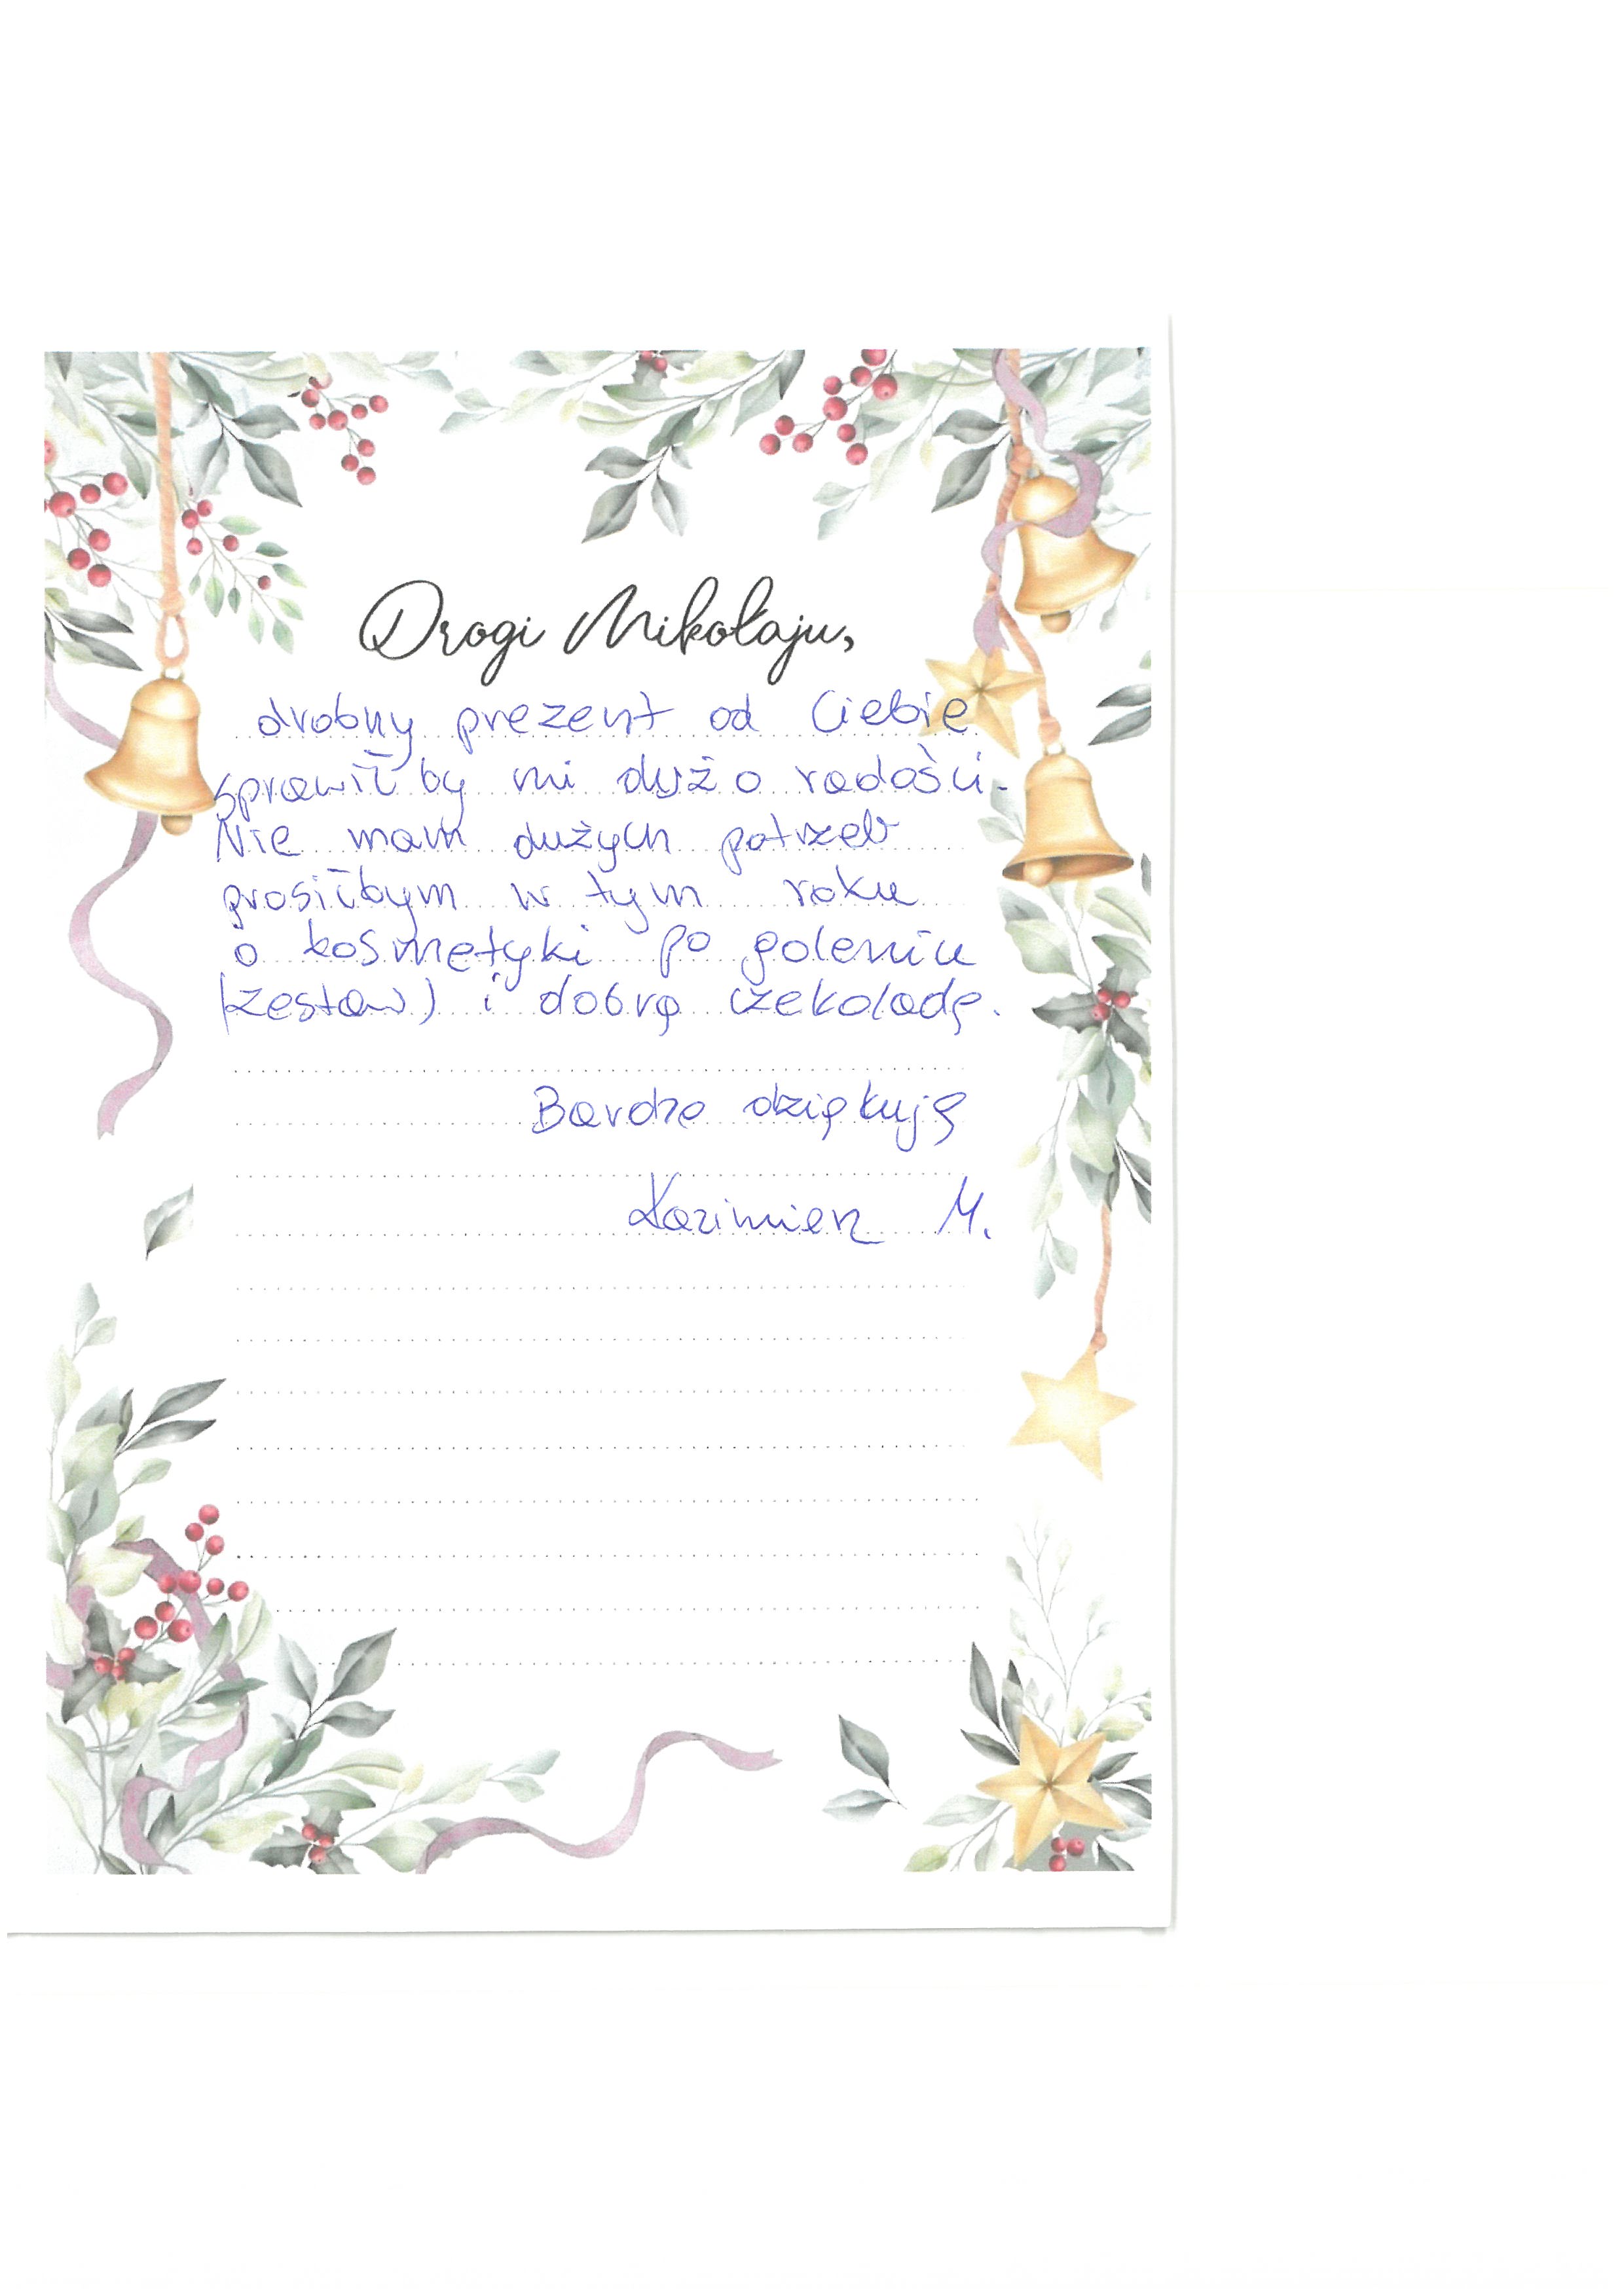 Drogi Mikołaju,
drobny prezent od Ciebie
sprawił by mi dużo radości.
Nie mam dużych potrzeb
prosiłbym w tym roku
o kosmetyki po goleniu
(zestaw) i dobrą czekoladę.
Bardzo dziękuję
Kazimierz M.